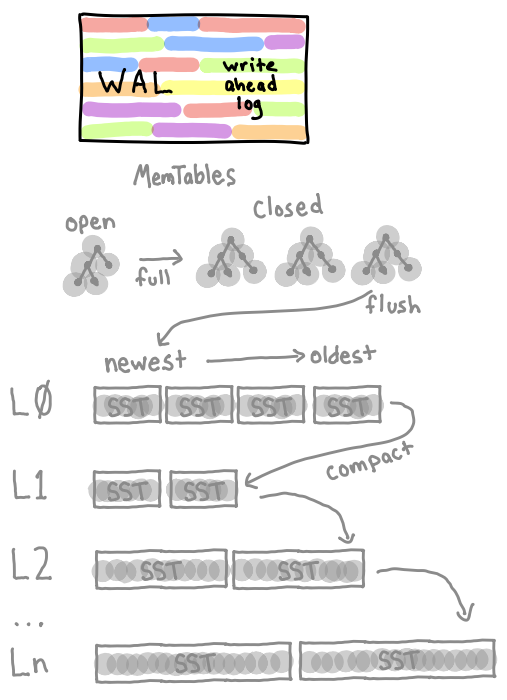 WAL
write
ahead
log
MemTables
open
closed
full
flush
newest
oldest
LØ
SST SST SST SST
compact
L1
SST SST
L2
SST SST
...
Ln
SST SST